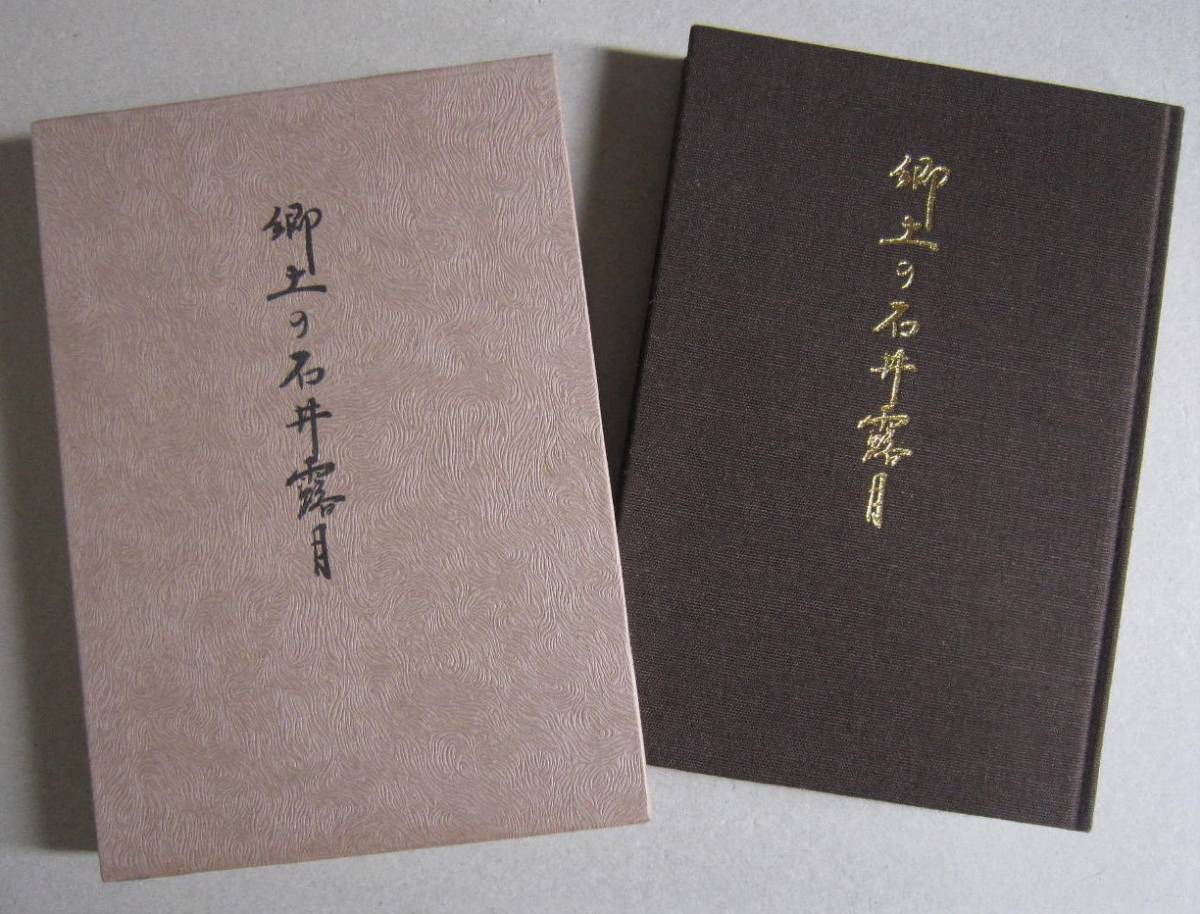 郷土の石井露月
郷土の石井露月